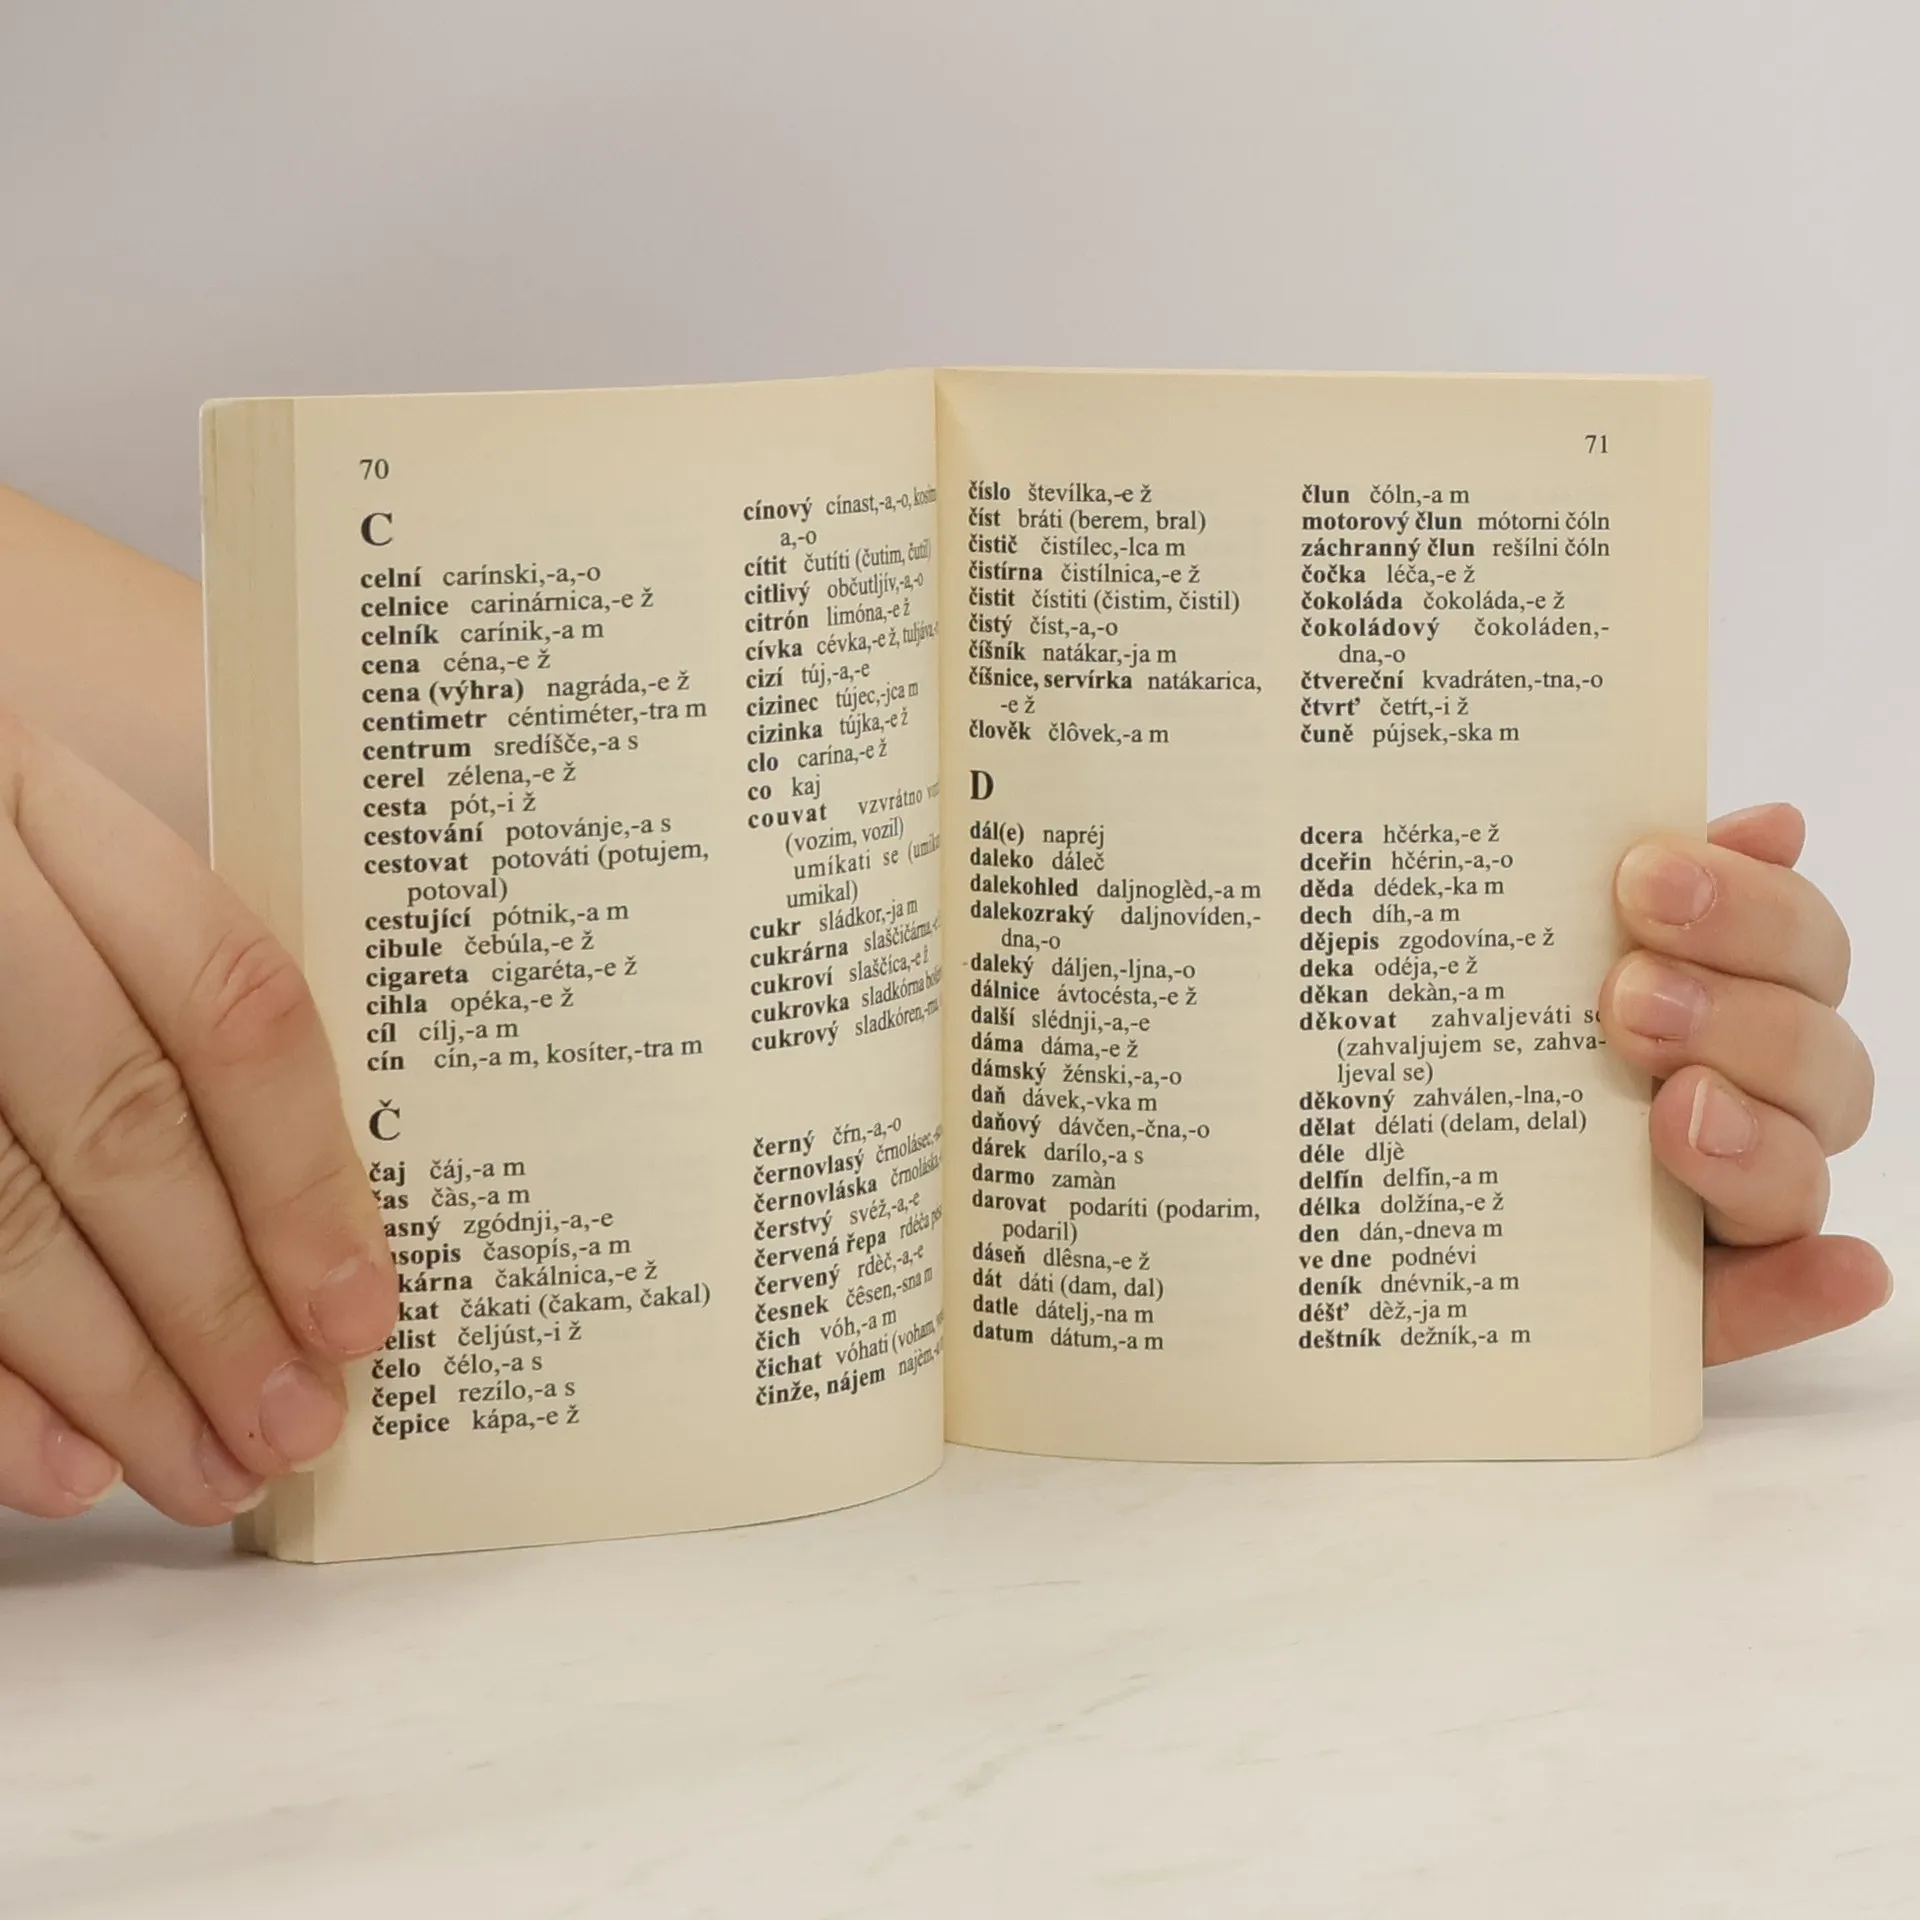 70
C
celní carínski,-a,-o
celnice carinárnica,-e ž
celník carínik,-a m
cena céna,-e ž
cena (výhra) nagráda,-e ž
centimetr céntiméter,-tra m
centrum sredíšče,-a s
cerel zélena,-e ž
cesta pót,-i ž
cestování potovánje,-a s
cestovat potováti (potujem,
potoval)
cestující pótnik,-a m
cibule čebúla,-e ž
cigareta cigaréta,-e ž
cihla opéka,-e ž
cíl cílj,-a m
cín cín,-a m, kosíter,-tra m
cínový cínast,-a,-o,
a,-o
cítit čutíti (čutim, čutil)
citlivý občutljív,-a,-o
citrón limóna,-e ž
cívka cévka,-e ž,
cizí túj,-a,-e
cizinec tújec,-jca m
cizinka tújka,-e ž
clo carína,-e ž
co kaj
couvat vzvrátno
(vozim, vozil)
umíkati se
umikal)
cukr sládkor,-ja m
cukrárna slaščičárna,
cukroví slaščíca,-e ž
cukrovka sladkórna
cukrový sladkóren,
Č
čaj čáj,-a m
čàs,-a m
zgódnji,-a,-e
časopís,-a m
čakálnica,-e ž
čákati (čakam, čakal)
čeljúst,-i ž
čelo čélo,-a s
čepel rezílo,-a s
čepice kápa,-e ž
černý čŕn,-a,-o
černovlasý črnolásec,
černovláska črnoláska,
čerstvý svéž,-a,-e
červená řepa rdéča
červený rdèč,-a,-e
česnek čêsen,-sna m
čich vóh,-a m
čichat vóhati (voham,
činže, nájem najèm,
71
číslo števílka,-e ž
číst bráti (berem, bral)
čistič čistílec,-lca m
čistírna čistílnica,-e ž
čistit čístiti (čistim, čistil)
čistý číst,-a,-o
číšník natákar,-ja m
číšnice, servírka natákarica,
-e ž
člověk člôvek,-a m
člun čóln,-a m
motorový člun mótorni čóln
záchranný člun rešílni čóln
čočka léča,-e ž
čokoláda čokoláda,-e ž
čokoládový čokoláden,-
dna,-o
čtvereční kvadráten,-tna,-o
čtvrť četŕt,-i ž
čuně pújsek,-ska m
D
dál(e) napréj
daleko dáleč
dalekohled daljnoglèd,-a m
dalekozraký daljnovíden,-
dna,-o
daleký dáljen,-ljna,-o
dálnice ávtocésta,-e ž
další slédnji,-a,-e
dáma dáma,-e ž
dámský žénski,-a,-o
daň dávek,-vka m
daňový dávčen,-čna,-o
dárek darílo,-a s
darmo zamàn
darovat podaríti (podarim,
podaril)
dáseň dlêsna,-e ž
dát dáti (dam, dal)
datle dátelj,-na m
datum dátum,-a m
dcera hčérka,-e ž
dceřin hčérin,-a,-o
děda dédek,-ka m
dech díh,-a m
dějepis zgodovína,-e ž
deka odéja,-e ž
děkan dekàn,-a m
děkovat zahvaljeváti se
(zahvaljujem se, zahva-
ljeval se)
děkovný zahválen,-lna,-o
dělat délati (delam, delal)
déle dljè
delfín delfín,-a m
délka dolžína,-e ž
den dán,-dneva m
ve dne podnévi
deník dnévnik,-a m
déšť dèž,-ja m
deštník dežník,-a m